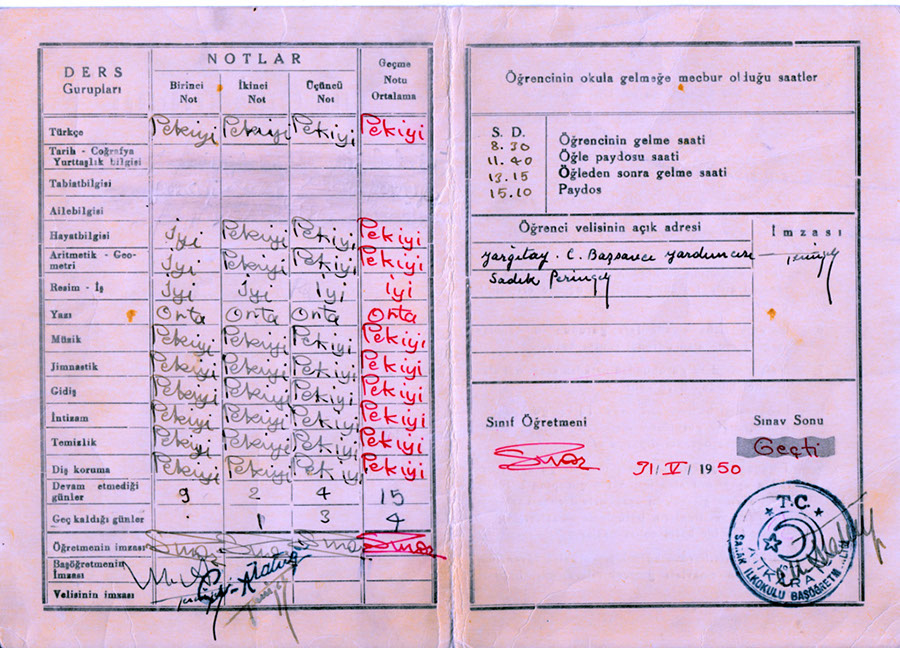 DERS
Gurupları
NOTLAR
Geçme
Notu
Ortalama
Birinci
Not
İkinci
Not
Üçüncü
Not
Türkçe Pekiyi Pekiyi Pekiyi Pekiyi
Tarih - Coğrafya
Yurttaşlık bilgisi
Tabiatbilgisi
Ailebilgisi
Hayatbilgisi İyi Pekiyi Pekiyi Pekiyi
Aritmetik - Geo-
metri İyi Pekiyi Pekiyi Pekiyi
Resim - İş İyi İyi İyi İyi
Yazı Orta Orta Orta Orta
Müzik Pekiyi Pekiyi Pekiyi Pekiyi
Jimnastik Pekiyi Pekiyi Pekiyi Pekiyi
Gidiş Pekiyi Pekiyi Pekiyi Pekiyi
İntizam Pekiyi Pekiyi Pekiyi Pekiyi
Temizlik Pekiyi Pekiyi Pekiyi Pekiyi
Diş koruma Pekiyi Pekiyi Pekiyi Pekiyi
Devam etmediği
günler 9 2 4 15
Geç kaldığı günler . 1 3 4
Öğretmenin imzası
Başöğretmenin
İmzası
Velisinin imzası
Öğrencinin okula gelmeğe mecbur olduğu saatler
S. D.
8.30 Öğrencinin gelme saati
11.40 Öğle paydosu saati
13.15 Öğleden sonra gelme saati
15.10 Paydos
Öğrenci velisinin açık adresi
İmzası
Yargıtay. C. Başsavcı Yardımcısı
Sadık Perinçek
Sınıf Öğretmeni
Sınav Sonu
Geçti
31/V/1950
T.C.
İLKOKULU BAŞÖĞRETM